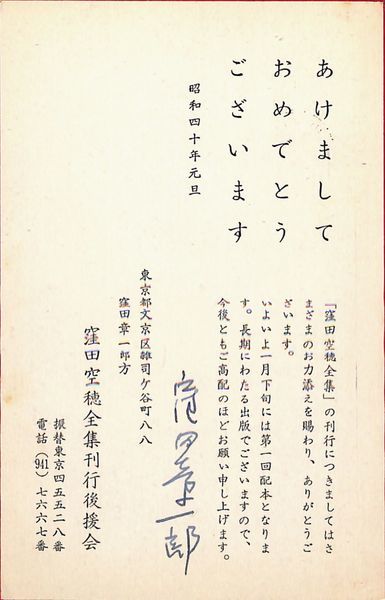 あけまして
おめでとう
ございます
昭和四十年元旦
「窪田空穂全集」の刊行につきましてはさ
まざまのお力添えを賜わり、ありがとうご
ざいます。
いよいよ一月下旬には第一回配本となりま
す。長期にわたる出版でございますので、
今後ともご高配のほどお願い申し上げます。
窪田章一郎
東京都文京区雑司ケ谷町八八
窪田章一郎方
窪田空穂全集刊行後援会
振替東京四五五二八番
電話（941）七六六七番